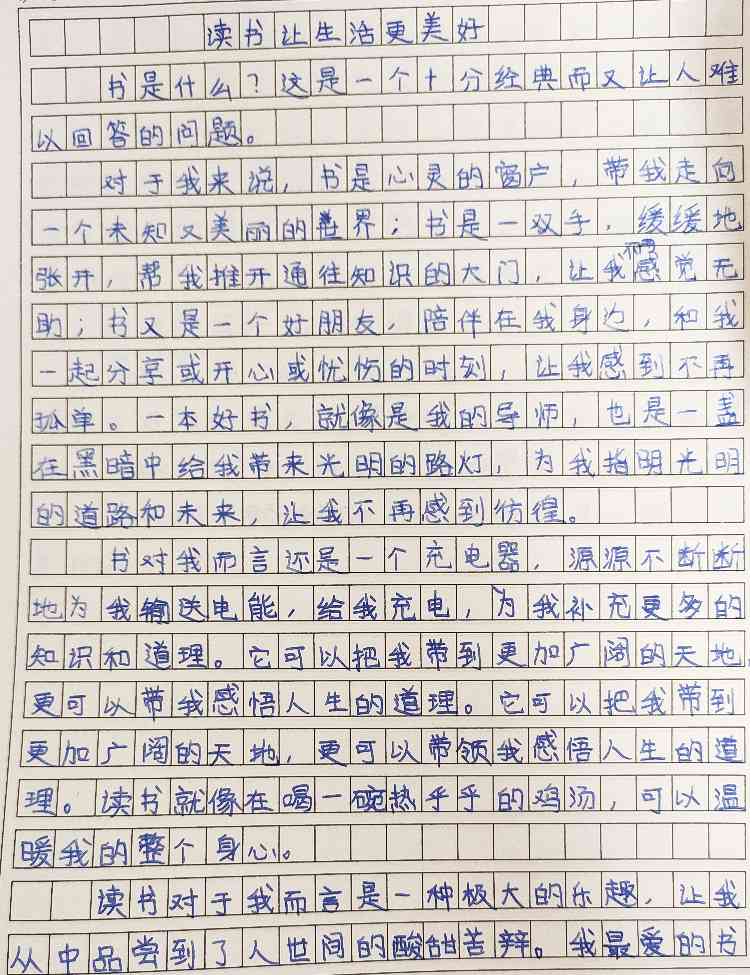 读书让生活更美好
书是什么?这是一个十分经典而又让人难
以回答的问题。
对于我来说,书是心灵的窗户,带我走向
一个未知又美丽的世界;书是一双手,缓缓地
张开,帮我推开通往知识的大门,让我不再感觉无
助;书又是一个好朋友,陪伴在我身边,和我
一起分享或开心或忧伤的时刻,让我感到不再
孤单。一本好书,就像是我的导师,也是一盏
在黑暗中给我带来光明的路灯,为我指明光明
的道路和未来,让我不再感到彷徨。
书对我而言还是一个充电器,源源不断断
地为我输送电能,给我充电,为我补充更多的
知识和道理。它可以把我带到更加广阔的天地,
更可以带我感悟人生的道理。它可以把我带到
更加广阔的天地,更可以带领我感悟人生的道
理。读书就像在喝一碗热乎乎的鸡汤,可以温
暖我的整个身心。
读书对于我而言是一种极大的乐趣,让我
从中品尝到了人世间的酸甜苦辣。我最爱的书